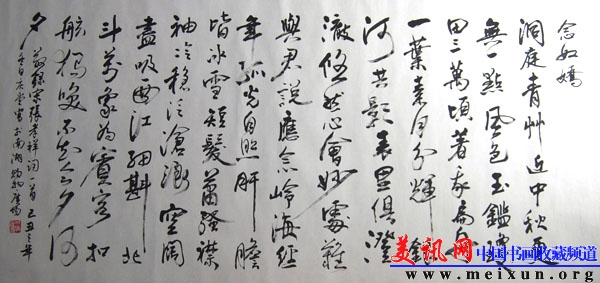 念奴嬌
洞庭青艸近中秋更
無一點風色玉鑑瓊
田三萬頃著我扁舟
一葉素月分輝銀
河共影表裏俱澄
澈悠然心會妙處難
與君說應念嶺海經
年孤光自照肝膽
皆冰雪短髮蕭騷襟
袖冷穩泛滄浪空闊
盡吸西江細斟北
斗萬象為賓客扣
舷獨嘯不知今夕何
夕 錄宋張孝祥詞一首己丑之年
冬日 書於南湖
美讯网 中国书画收藏频道
www.meixun.org